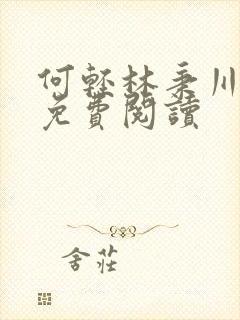 何輕林秉川
免費閱讀
舍莊